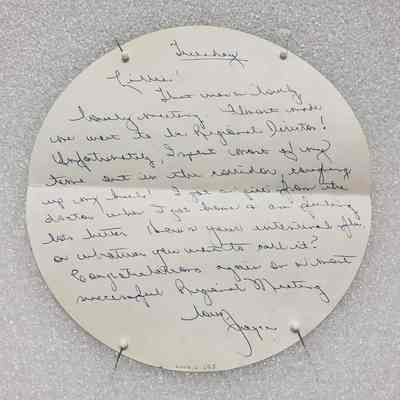 Tuesday
Lillie!
That was a lovely
lovely meeting. Almost made
me want to be Regional Director!
Unfortunately, I spent most of my
time out in the corridor, coughing
up my head! I got a from the
doctor when I got home & am feeling
lots better. How's your intestinal flu,
or whatever you want to call it?
Congratulations again on a most
successful Regional Meeting
Love,